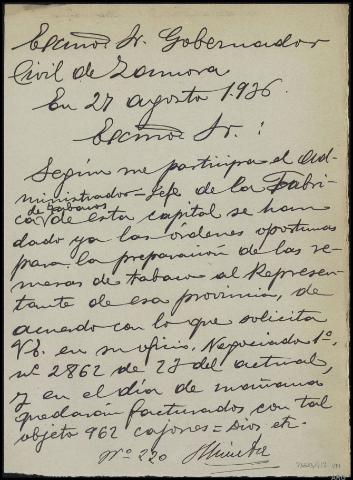 Excmo. Sr. Gobernador
Civil de Zamora
En 27 agosto 1.936.
Excmo. Sr.:
Según me participa el Ad-
ministrador=Jefe de la Fabri-
de tabacos
ca de esta capital se han
dado ya las órdenes oportunas
para la preparación de las re-
mesas de tabaco al Represen-
tante de esa provincia, de
acuerdo con lo que solicita
V.E. en su oficio, Negociado 1º,
nº 2862 de 23 del actual,
y en el día de mañana
quedarán facturados con tal
objeto 962 cajones = Dios etc.
Nº 220